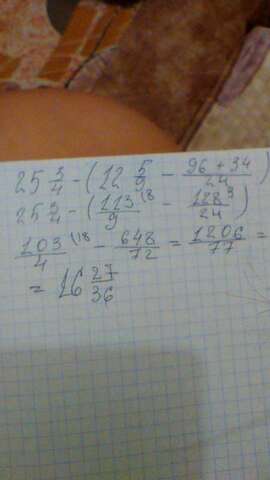 25 3/4 - (12 5/9 - 96 + 34/24)
25 3/4 - (113/9 (8 - 128/24 3)
103/4 (18 - 648/72 = 1206/77 =
= 16 27/36